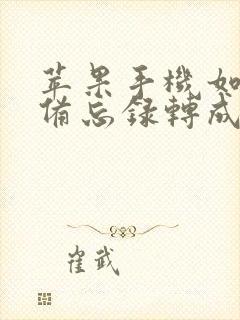 苹果手機如
備忘錄轉成
崔武